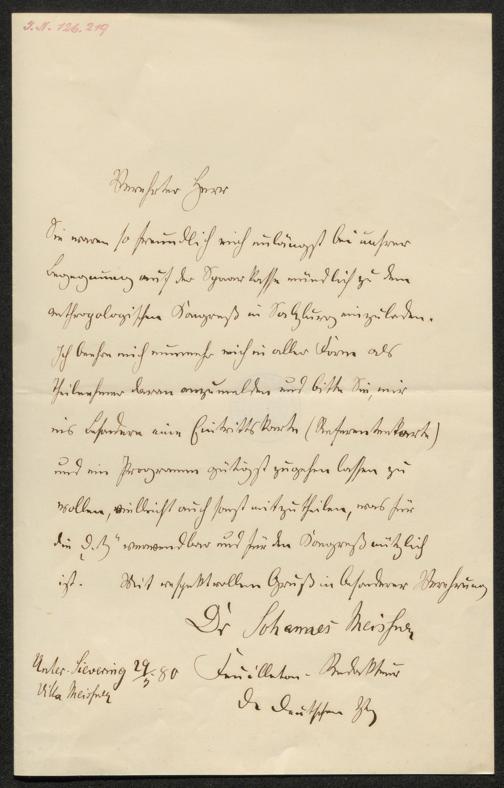 I.N. 126.219
Verehrter Herr
Sie waren so freundlich mich unlängst bei unsrer
Begegnung auf der Sparkasse mündlich zu dem
anthropologischen Kongreß in Salzburg einzuladen.
Ich beehre mich nunmehr mich in aller Form als
Theilnehmer daran anzumelden und bitte Sie, mir
ins besondere eine Eintrittskarte (Referentenkarte)
und ein Programm gütigst zugehen lassen zu
wollen, vielleicht auch sonst mitzutheilen, was für
die „D. Ztg“ verwendbar und für den Kongreß nützlich
ist. Mit respektvollem Gruß in besonderer Verehrung
Dr Johannes Meißner
Feuilleton-Redakteur
der deutschen Ztg
Unter-Sievering 29/ 80
Villa Meißner